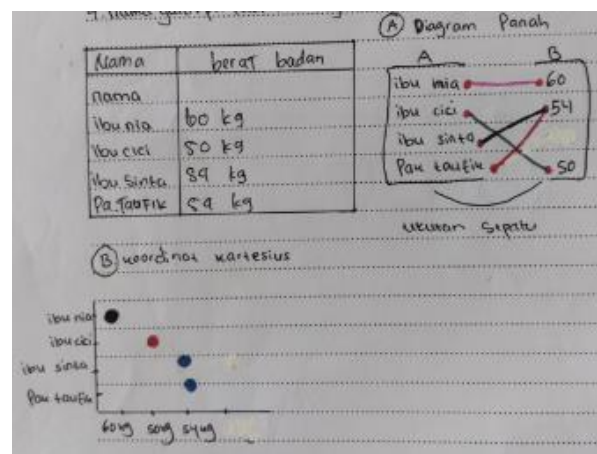 A Diagram Panah
Nama berat badan
nama
ibu nia 60 kg
ibu cici 50 kg
ibu Sinta 54 kg
Pa. Taufik 54 kg
A B
ibu nia 60
ibu cici 54
ibu sinta
Pak taufik 50
ukuran Sepatu
B koordinat kartesius
ibu nia
ibu cici
ibu sinta
Pak taufik
60kg 50kg 54kg